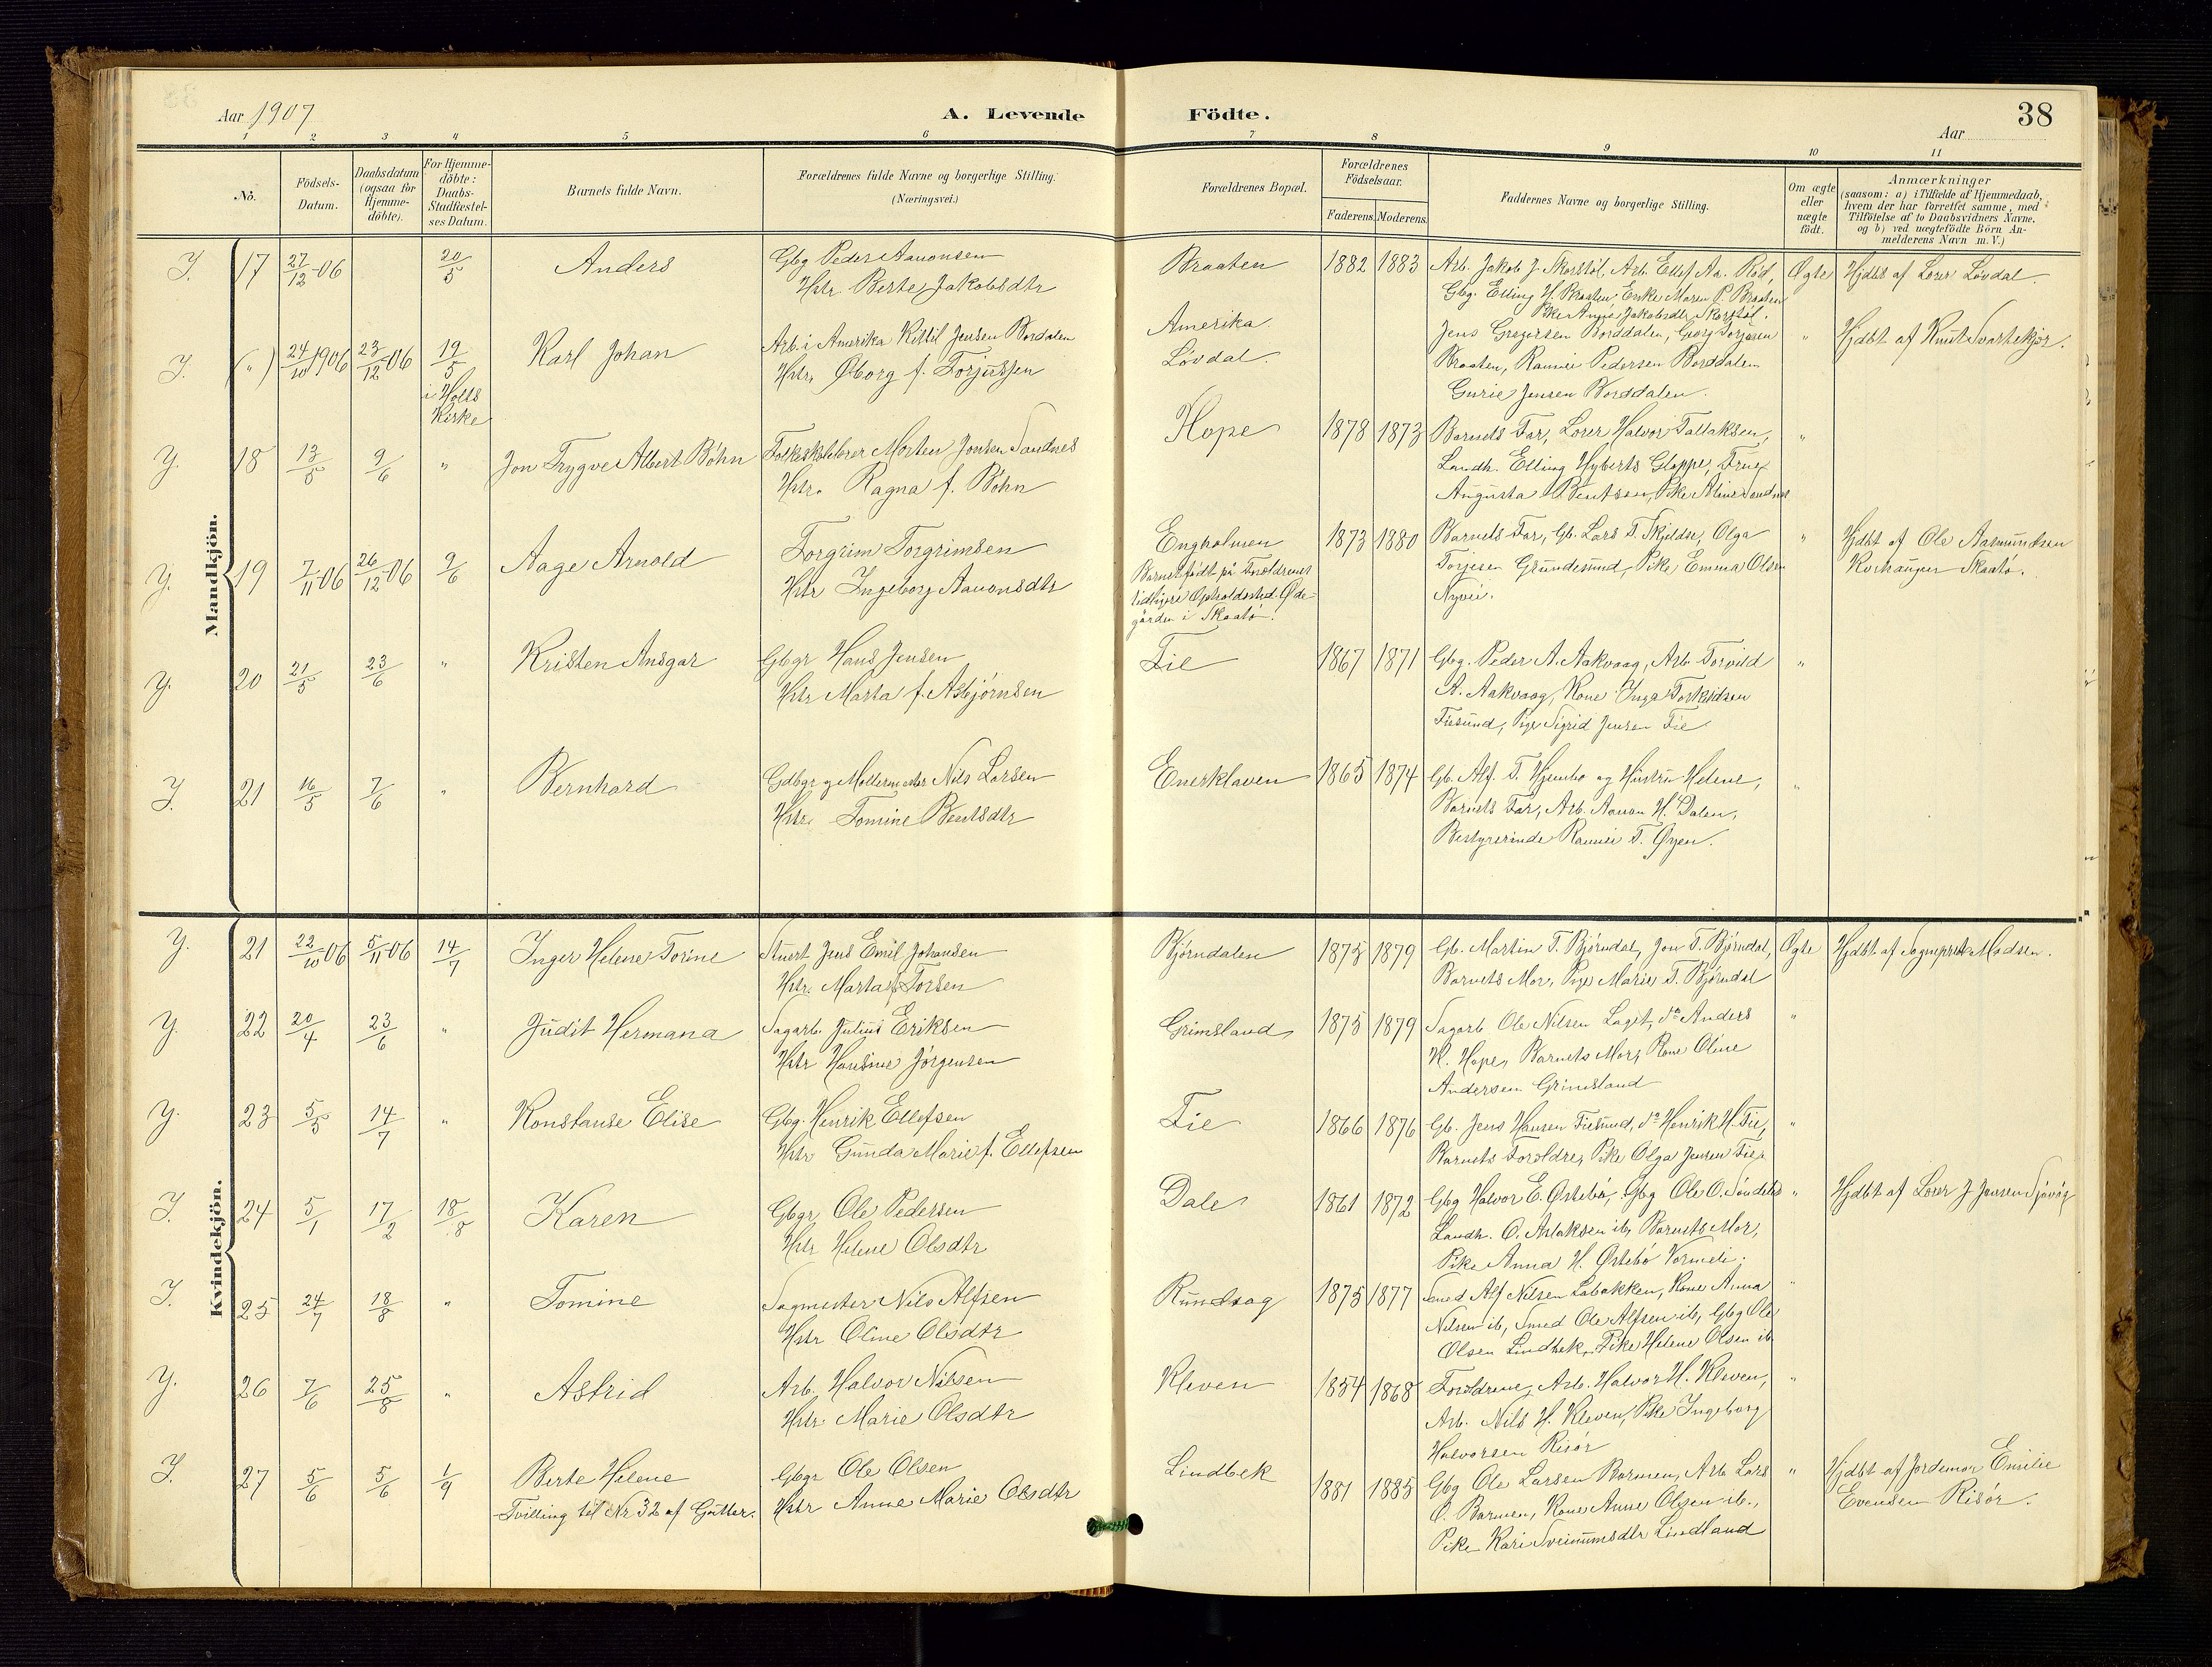 Aar 1907
A. Levende Födte.
38
Aar
1 2 3 4 5 6 7 8 9 10 11
No.
Födsels-
Datum.
Daabsdatum
(ogsaa for
Hjemme-
döbte).
For Hjemme-
döbte:
Daabs-
Stadfæstel-
ses Datum.
Barnets fulde Navn.
Forældrenes fulde Navne og borgerlige Stilling.
(Næringsvei.)
Forældrenes Bopæl.
Forældrenes
Födselsaar.
Faderens. Moderens.
Faddernes Navne og borgerlige Stilling.
Om ægte
eller
uægte
födt.
Anmærkninger
(saasom: a) i Tilfælde af Hjemmedaab,
hvem der har forrettet samme, med
Tilföielse af to Daabsvidners Navne,
og b) ved uægtefödte Börn An-
melderens Navn m. V.)
Mandkjön.
I. 17 27/12-06 20/5 Anders
Gbg Peder Aanonsen
Hstr. Berte Jakobsdtr
Braaten 1882 1883
Arb. Jakob J. Skorstøl, Arb. Ellef Aa. Rød,
Gbg. Elling H. Braaten, Enke Maren P. Braaten
Pike Anne Jakobsdtr Skorstøl.
Ægte Hjdbt af Lærer Løvdal.
I. (") 24/10 1906 23/12-06 19/5
i Holts
Kirke
Karl Johan
Arb. i Amerika Kittil Jensen Borddalen
Hstr. Øborg f. Torjussen
Amerika.
Løvdal.
Jens Gregersen Borddalen, Georg Torjusen
Braaten, Rannei Pedersen Borddalen
Gurie Jensen Borddalen.
" Hjdbt af Knut Svartekjær.
Y. 18 13/5 9/6 " Jon Trygve Albert Bøhn
Folkeskolelærer Morten Jonsen Sandnes
Hstr. Ragna f. Bøhn
Hope 1878 1873
Barnets Far, Lærer Halvor Tallaksen,
Landh. Elling Hyberts Gloppe, Frue
Augusta Bentsen, Pike Aline Sandnes
"
Y. 19 7/11-06 26/12-06 9/6 Aage Arnold
Torgrim Torgrimsen
Hstr Ingeborg Aanonsdtr
Engholmen 1873 1880
Barnet født på Forældrenes
tidligere Opholdssted Øde-
gården i Skaatø.
Barnets Far, Gb. Lars T. Skjeldsø, Olga
Torjesen Grundesund, Pike Emma Olsen
Nyvei.
" Hjdbt af Ole Aasmundsen
Korhaugen Skaatø.
Y. 20 21/5 23/6 " Kristen Ansgar
Gbgr Hans Jensen
Hstr Marta f. Asbjørnsen
Fie 1867 1871
Gbg. Peder A. Aakvaag, Arb. Torvild
A. Aakvaag, Kone Inga Torkildsen
Fiesund, Pige Sigrid Jensen Fie
"
I. 21 16/5 7/6 " Bernhard
Gdbgr og Møllermester Nils Larsen
Hstr. Tomine Bentsdtr
Enerklaven 1865 1874
Gb. Alf T. Hjembo og Hustru Helene,
Barnets Far, Arb. Aanon H. Dalen,
Bestyrerinde Rannei T. Øyen.
"
Kvindekjön.
Y. 21 22/10-06 5/11-06 14/7 Inger Helene Torine
Stuert Jens Emil Johansen
Hstr. Marta f. Torsen
Bjørndalen 1875 1879
Gb. Martin T. Bjørndal, Jon T. Bjørndal,
Barnets Mor, Pige Marie T. Bjørndal
Ægte Hjdbt af Sogneprest Madsen.
Y. 22 20/4 23/6 " Judit Hermana
Sagarb. Julius Eriksen
Hstr Hansine Jørgensen
Grimsland 1875 1879
Sagarb Ole Nilsen Laget, do Anders
H. Hope, Barnets Mor, Kone Oline
Andersen Grimsland
"
Y. 23 5/5 14/7 " Konstanse Elise
Gbg. Henrik Ellefsen
Hstr Gunda Marie f. Ellefsen
Fie 1866 1876
Gb. Jens Hansen Fiesund, do Henrik H. Fie,
Barnets Forældre, Pike Olga Jensen Fie.
"
I. 24 5/1 17/2 18/8 Karen
Gbgr Ole Pedersen
Hstr Helene Olsdtr
Dale 1861 1872
Gbg Halvor E. Østebø, Gbg Ole O. Søndeled
Landh. O. Aslaksen ib, Barnets Mor,
Pike Anna H. Østebø Vormeli.
" Hjdbt af Lærer J Jensen Sjøvåg
I. 25 24/7 18/8 " Tomine
Sagmester Nils Alfsen
Hstr Oline Olsdtr
Rundvag 1875 1877
Smed Alf Nilsen Labakken, Kone Anna
Nilsen ib, Smed Ole Alfsen ib, Gbg Ole
Olsen Lindbek, Pike Helene Olsen ib
"
Y. 26 7/6 25/8 " Astrid
Arb. Halvor Nilsen
Hstr. Marie Olsdtr
Kleven 1854 1868
Forældrene, Arb. Halvor H. Kleven,
Arb. Nils H. Kleven, Pike Ingeborg
Halvorsen Risør
"
I. 27 5/6 5/6 1/9 Berte Helene
Tvilling til Nr 32 af Gutter.
Gbgr Ole Olsen
Hstr Anne Marie Olsdtr
Lindbek 1881 1885
Gbg Ole Larsen Barmen, Arb Lars
O. Barmen, Kone Anne Olsen ib.,
Pike Kari Sveinumsdtr Lindland
" Hjdbt af Jordemor Emilie
Evensen Risør.